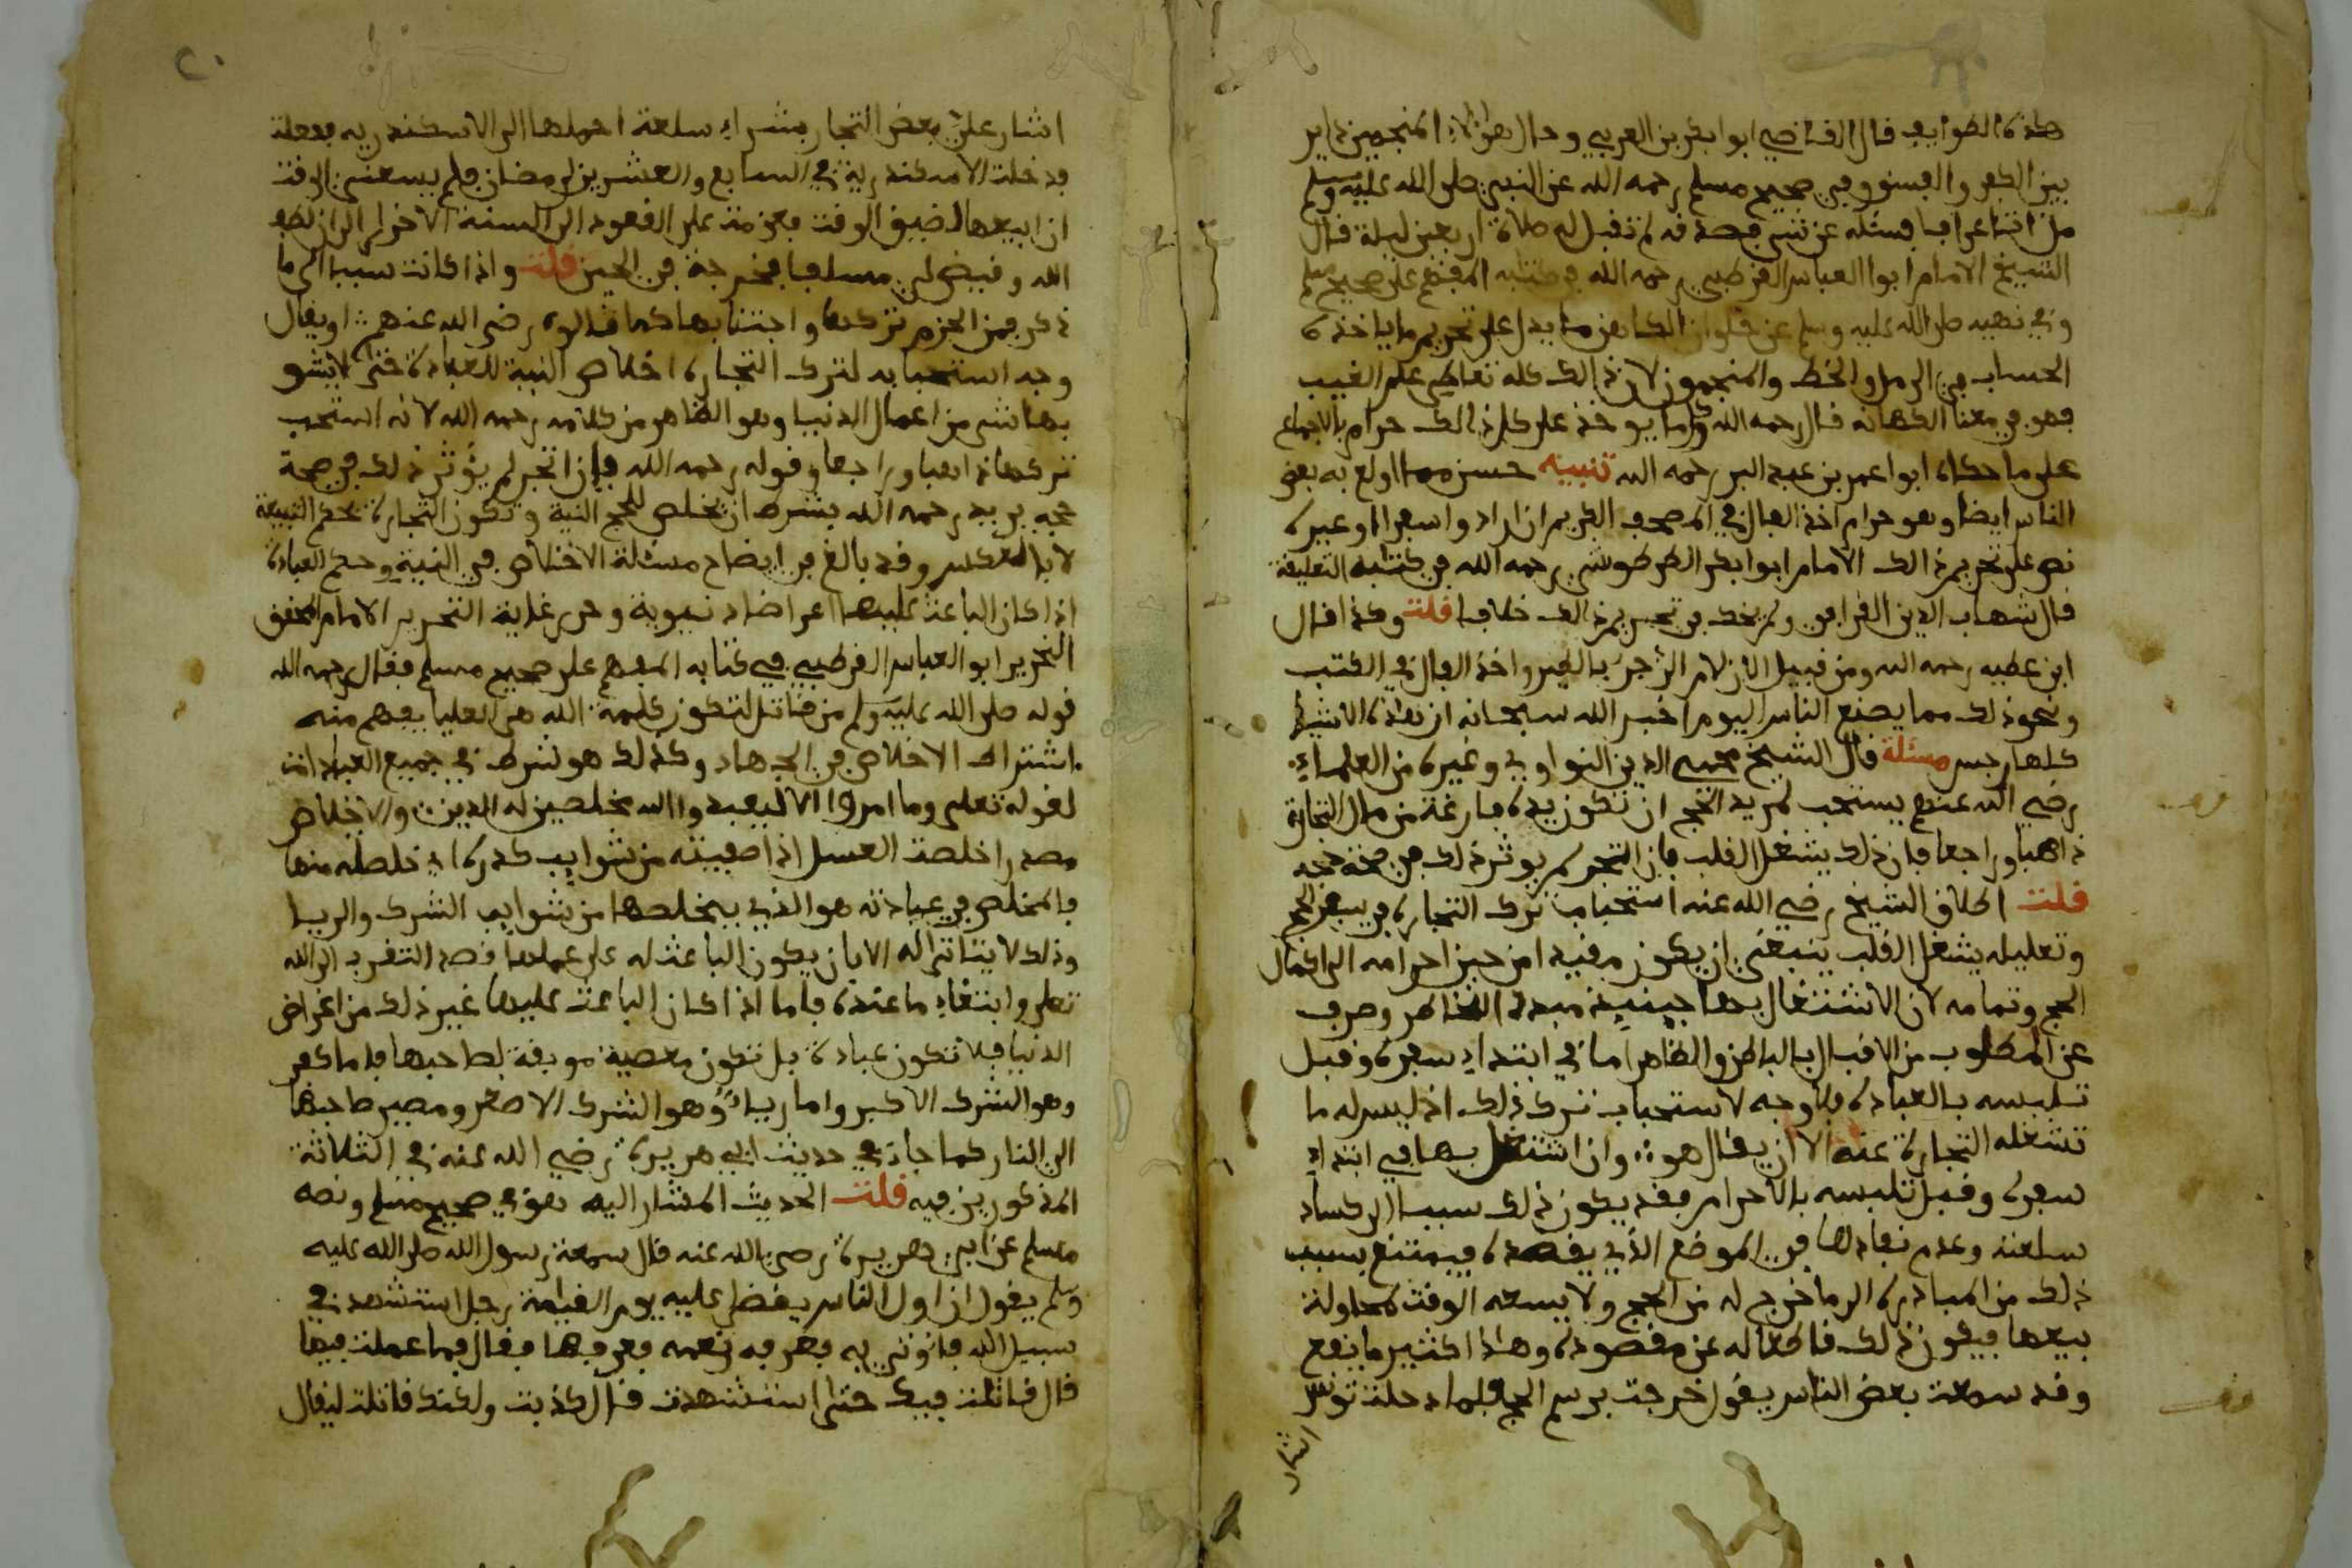 هذه الطوايف قال القاضي ابوا بكر بن العربي وحال هؤلاء المنجمين داير
بين الكفر والفسق وفي صحيح مسلم رحمه الله عن النبي صلى الله عليه وسلم
من اتا عرافا فسئله عن شي فصدقه لم تقبل له صلاة اربعين ليلة قال
الشيخ الامام ابوا العباس القرطبي رحمه الله في كتابه المفهم على صحيح مسلم
وفي نهيه صلى الله عليه وسلم عن حلوان الكاهن ما يدل على تحريم ما ياخذه
الحساب في الرمل والخط والمنجمون لان ذالك كله تعاطي علم الغيب
فهو في معنا الكهانه قال رحمه الله وكلما يوخذ على كل ذالك حرام بالاجماع
على ما حكاه ابوا عمر بن عبد البر رحمه الله تنبيه حسن مما اولع به بعض
الناس ايضا وهو حرام اخذ الفال في المصحف الكريم ان ارادوا سفرا او غيره
نص على تحريم ذالك الامام ابوا بكر الطرطوشي رحمه الله في كتابه التعليقة
قال شهاب الدين القرافي ولم يحك في تحريم ذالك خلافا قلت وكذا قال
ابن عطيه رحمه الله ومن قبيل الازلام الزجر بالطير واخذ الفال في الكتب
ونحو ذلك مما يصنع الناس اليوم اخبر الله سبحانه ان هذه الاشيا
كلها رجس مسئلة قال الشيخ محيي الدين النواوي وغيره من العلماء
رضي الله عنهم يستحب لمريد الحج ان تكون يده فارغة من مال التجارة
ذاهبا وراجعا فان ذلك يشغل القلب فان اتجر لم يوثر ذلك في صحة حجه
قلت اطلاق الشيخ رضي الله عنه استحباب ترك التجارة في سفر الحج
وتعليله يشغل القلب ينبغي ان يكون مقيدا من حين احرامه الى اكمال
الحج وتمامه لان الاشتغال بها حينيذ مبدد الخاطر وصرف
عن المطلوب من الاقبال بالباطن والظاهر اما في ابتداء سفره وقبل
تلبسه بالعبادة فلا وجه لاستحباب ترك ذلك اذ ليس له ما
تشغله التجارة عنه الا ان يقال هو وان اشتغل بها في ابتداء
سفره وقبل تلبسه بالاحرام فقد يكون ذلك سببا الى كساد
سلعته وعدم نفادها في الموضع الذي يقصده فيمتنع بسبب
ذلك من المبادرة الى ما خرج له من الحج ولا يسعه الوقت لمحاولة
بيعها فيكون ذلك قاطعا له عن مقصوده وهذا كثير ما يقع
وقد سمعت بعض الناس يقول خرجت برسم الحج فلما دخلت تونس
اشار
اشار علي بعض التجار بشراء سلعة احملها الى الاسكندريه ففعلت
فدخلت الاسكندرية في السابع والعشرين لرمضان فلم يسعني الوقت
ان ابيعها لضيق الوقت فعزمت على القعود الى السنة الاخرى الى ان لطف
الله وقيض لي مسلفا فخرجت في الحين قلت واذا كانت سببا الى ما
ذكر فمن الحزم تركها واجتنابها كما قالوه رضي الله عنهم او يقال
وجه استحبابه لترك التجارة اخلاص النية للعبادة حتى لا يشو
بها شي من اعمال الدنيا وهو الظاهر من كلامه رحمه الله لانه استحب
تركها ذاهبا وراجعا وقوله رحمه الله فان اتجر لم يؤثر ذلك في صحة
حجه يريد رحمه الله بشرط ان تخلص للحج النية وتكون التجارة بحكم التبيعة
لا بالعكس وقد بالغ في ايضاح مسئلة الاخلاص في النية وحكم العبادة
اذا كان الباعث عليها اعراضا دنيوية وحرر غاية التحرير الامام المحقق
النحرير ابو العباس القرطبي في كتابه المفهم على صحيح مسلم فقال رحمه الله
قوله صلى الله عليه وسلم من قاتل لتكون كلمة الله هي العليا يفهم منه
اشتراط الاخلاص في الجهاد وكذلك هو شرط في جميع العبادات
لقوله تعلى وما امروا الا ليعبدوا الله مخلصين له الدين والاخلاص
مصدر اخلصت العسل اذا صفيته من شوايب كدره اي خلصته منها
فالمخلص في عبادته هو الذي يخلصها من شوايب الشرك والريا
وذلك لا يتاتى له الا بان يكون الباعث له على عملها قصد التقرب الى الله
تعلى وابتغاء ما عنده فاما اذا كان الباعث عليها غير ذلك من اغراض
الدنيا فلا تكون عبادة بل تكون معصية موبقة لصاحبها فاما كفر
وهو الشرك الاكبر واما رياء وهو الشرك الاصغر ومصير صاحبها
الى النار كما جاء في حديث ابي هريرة رضي الله عنه في الثلاثة
المذكورين فيه قلت الحديث المشار اليه هو في صحيح مسلم ونصه
مسلم عن ابي هريرة رضي الله عنه قال سمعت رسول الله صلى الله عليه
وسلم يقول ان اول الناس يقضى عليه يوم القيامة رجل استشهد في
سبيل الله فاوتي به فعرفه نعمه فعرفها فقال فما عملت فيها
قال قاتلت فيك حتى استشهدت قال كذبت ولكنك قاتلت ليقال